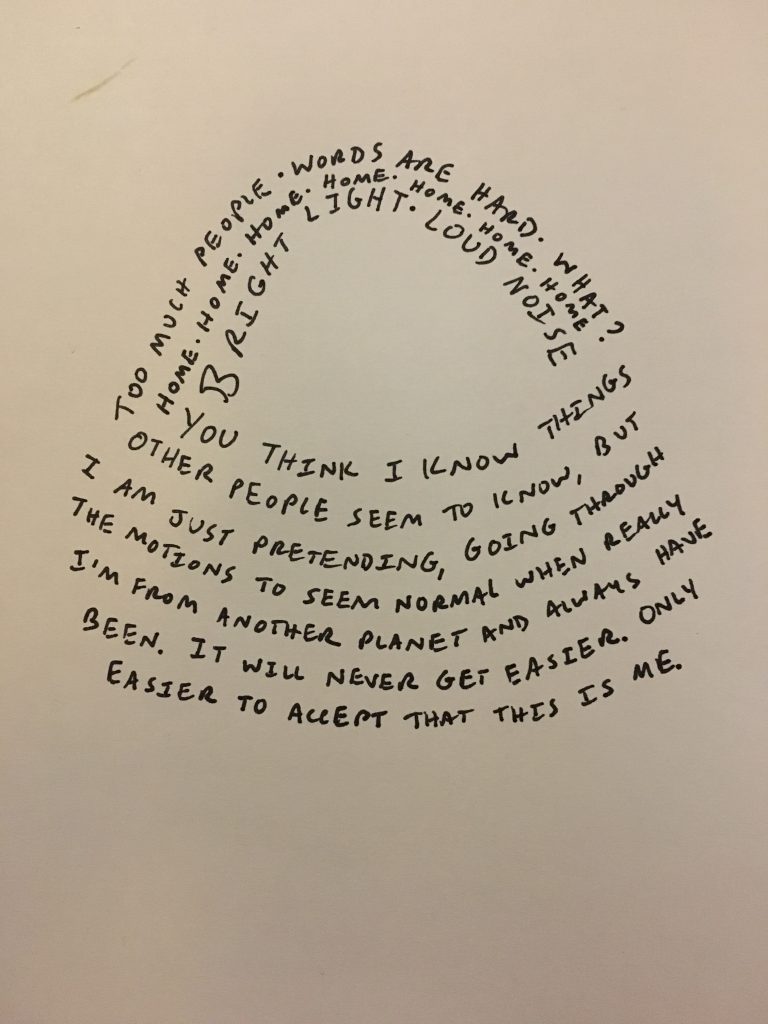 TOO MUCH PEOPLE. WORDS ARE HARD. WHAT?
HOME. HOME. HOME. HOME. HOME. HOME. HOME.
BRIGHT LIGHT. LOUD NOISE
YOU THINK I KNOW THINGS
OTHER PEOPLE SEEM TO KNOW, BUT
I AM JUST PRETENDING, GOING THROUGH
THE MOTIONS TO SEEM NORMAL WHEN REALLY
I'M FROM ANOTHER PLANET AND ALWAYS HAVE
BEEN. IT WILL NEVER GET EASIER. ONLY
EASIER TO ACCEPT THAT THIS IS ME.